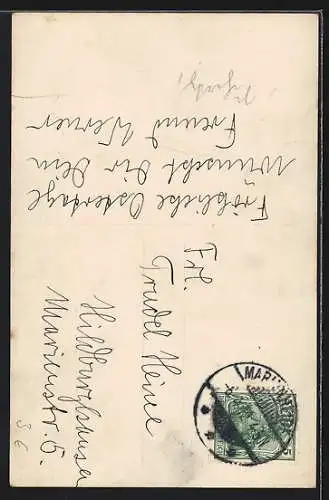 Fröhliche Ostertage
wünscht Dir Dein
Freund Werner
Frl.
Trudel Heine
Hildburghausen
Marienstr. 5.
36
5